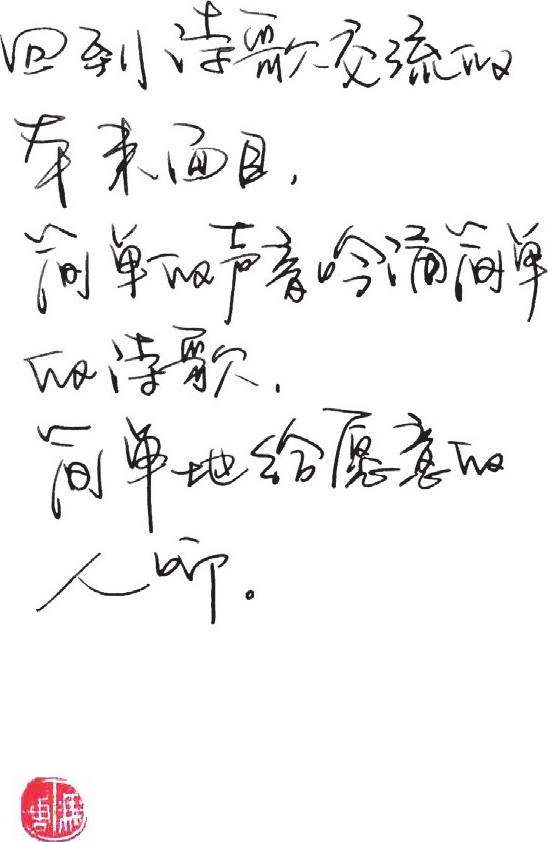 回到诗歌交流的
本来面目，
简单的声音吟诵简单
的诗歌，
简单地给愿意的
人听。